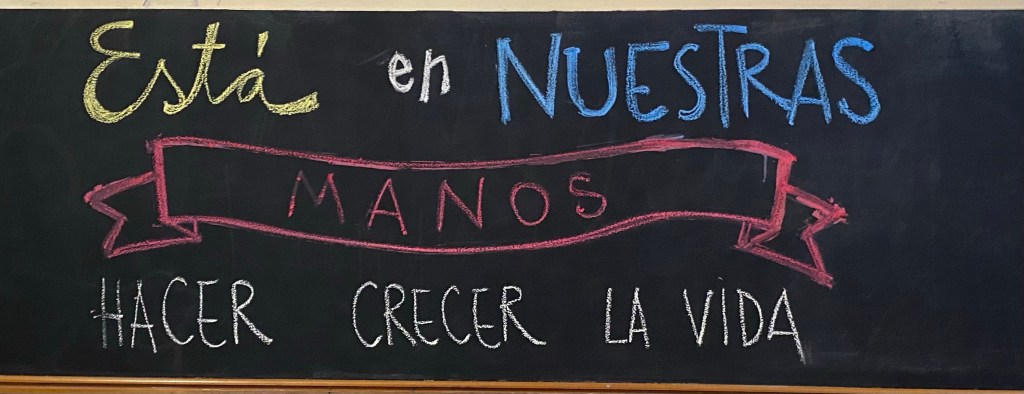 Está en NUESTRAS
MANOS
HACER CRECER LA VIDA